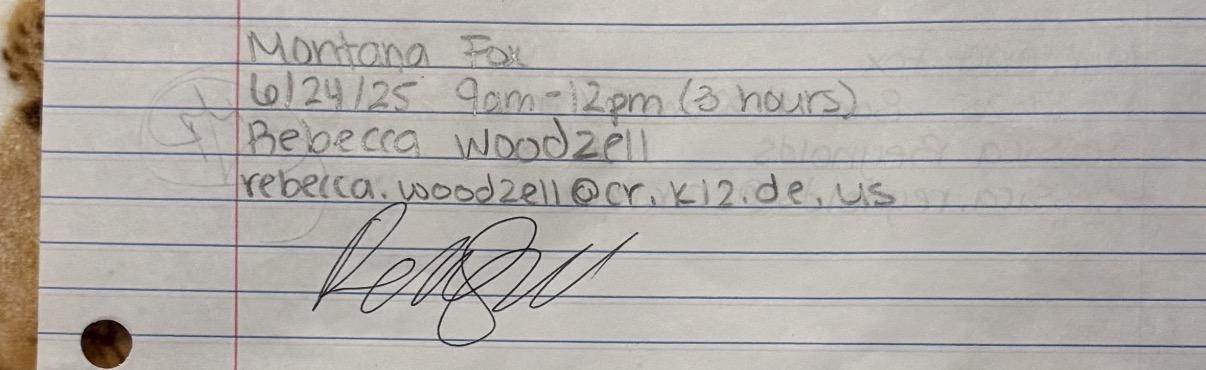 Montana Fox
6/24/25 9am-12pm (3 hours)
Rebecca Woodzell
rebecca.woodzell@cr.k12.de.us